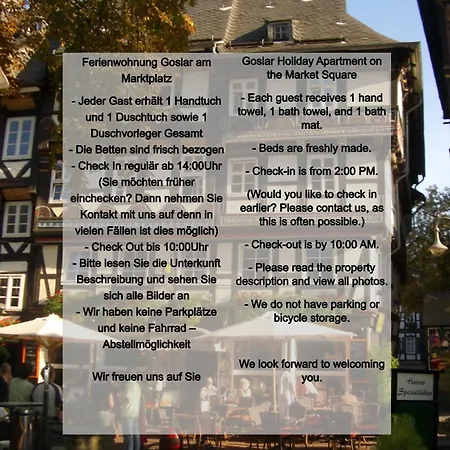 Ferienwohnung Goslar am
Marktplatz
- Jeder Gast erhält 1 Handtuch
und 1 Duschtuch sowie 1
Duschvorleger Gesamt
- Die Betten sind frisch bezogen
- Check In regulär ab 14:00Uhr
(Sie möchten früher
einchecken? Dann nehmen Sie
Kontakt mit uns auf denn in
vielen Fällen ist dies möglich)
- Check Out bis 10:00Uhr
- Bitte lesen Sie die Unterkunft
Beschreibung und sehen Sie
sich alle Bilder an
- Wir haben keine Parkplätze
und keine Fahrrad –
Abstellmöglichkeit
Wir freuen uns auf Sie
Goslar Holiday Apartment on
the Market Square
- Each guest receives 1 hand
towel, 1 bath towel, and 1 bath
mat.
- Beds are freshly made.
- Check-in is from 2:00 PM.
(Would you like to check in
earlier? Please contact us, as
this is often possible.)
- Check-out is by 10:00 AM.
- Please read the property
description and view all photos.
- We do not have parking or
bicycle storage.
We look forward to welcoming
you.